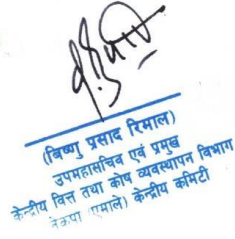 (बिष्णु प्रसाद रिमाल)
उपमहासचिव एवं प्रमुख
केन्द्रीय वित्त तथा कोष व्यवस्थापन विभाग
नेकपा (एमाले) केन्द्रीय कमिटी